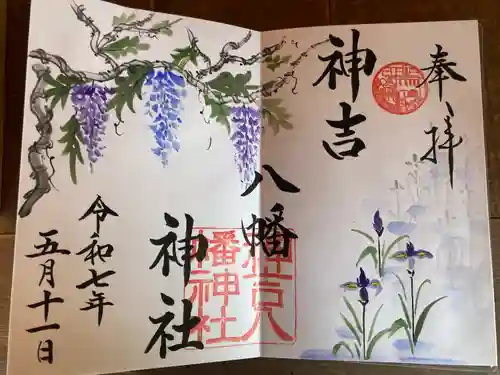 奉拝
神吉
八幡
神社
令和七年
五月十一日
神吉八
幡神社